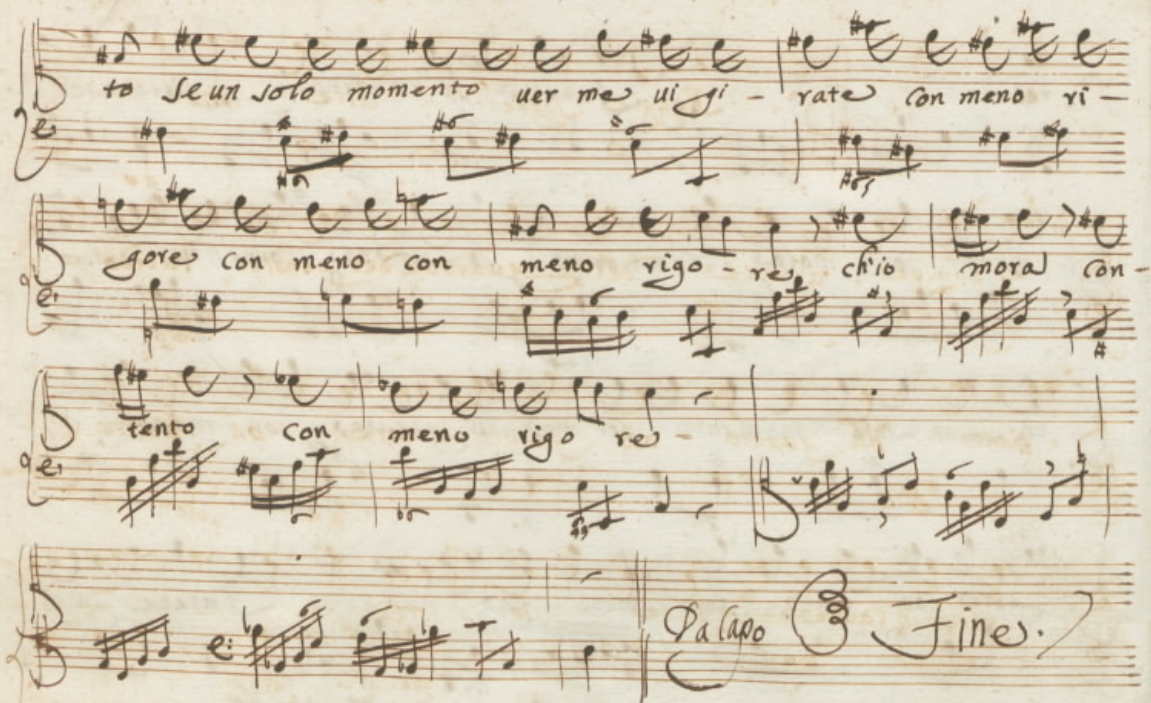 to se un solo momento uer me ui gi - rate con meno ri -
gore con meno con meno rigo - re ch'io mora con -
tento con meno rigo re -
Da Capo Fine.